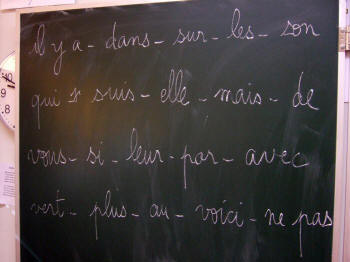 il y a - dans - sur - les - son
qui - suis - elle - mais - de
vous - si - leur - par - avec
vert - plus - au - voici - ne pas